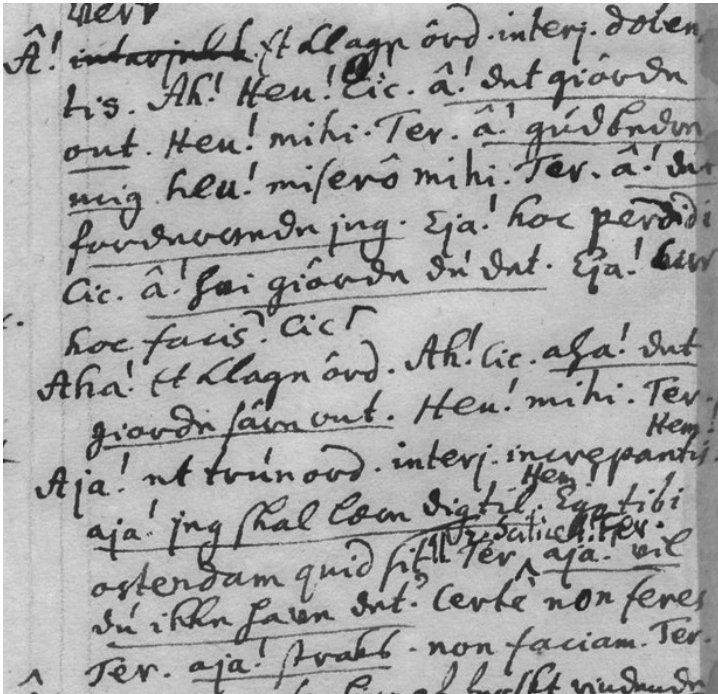 Â! et klage ôrd. interj. dolen
tis. Ah! Heu! Cic. â! det giôrde
ont. Heu! mihi. Ter. â! gúd bedre
mig heu! miserô mihi. Ter. â! det
forderfvede jeg. Eja! hoc perdidi
Cic. â! hvi giôrde dú det. Eja! cur
hoc facis? Cic
Aha! Et klage ôrd. Ah! Cic. aha! det
giorde sâre ont. Heu! mihi. Ter.
Hem!
Aja! et trúe ord. interj. increpantis.
Hem!
aja! jeg skal lære digtil. Ego tibi
ostendam quid sit Ter. aja! vil
dú ikke have det? Certê non feres
Ter. aja! straks. non faciam. Ter.